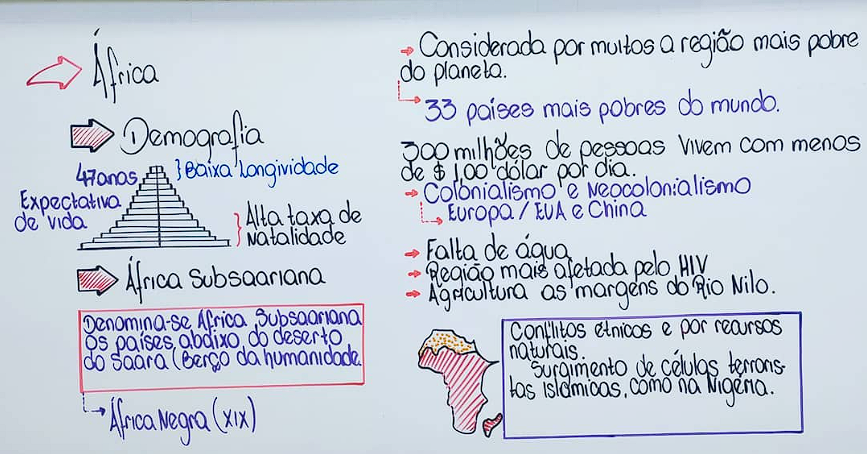 África
Demografia
47 anos
Expectativa
de vida
Baixa Longividade
Alta taxa de
Natalidade
África Subsaariana
Denomina-se África Subsaariana
os países abaixo do deserto
do Saara (Berço da humanidade
África Negra (XIX)
Considerada por muitos a região mais pobre
do planeta.
33 países mais pobres do mundo.
300 milhões de pessoas vivem com menos
de $ 1,00 dólar por dia.
Colonialismo e Neocolonialismo
Europa / EUA e China
Falta de água
Região mais afetada pelo HIV
Agricultura as margens do Rio Nilo.
Conflitos étnicos e por recursos
naturais.
Surgimento de células terroris-
tas islâmicas, como na Nigéria.